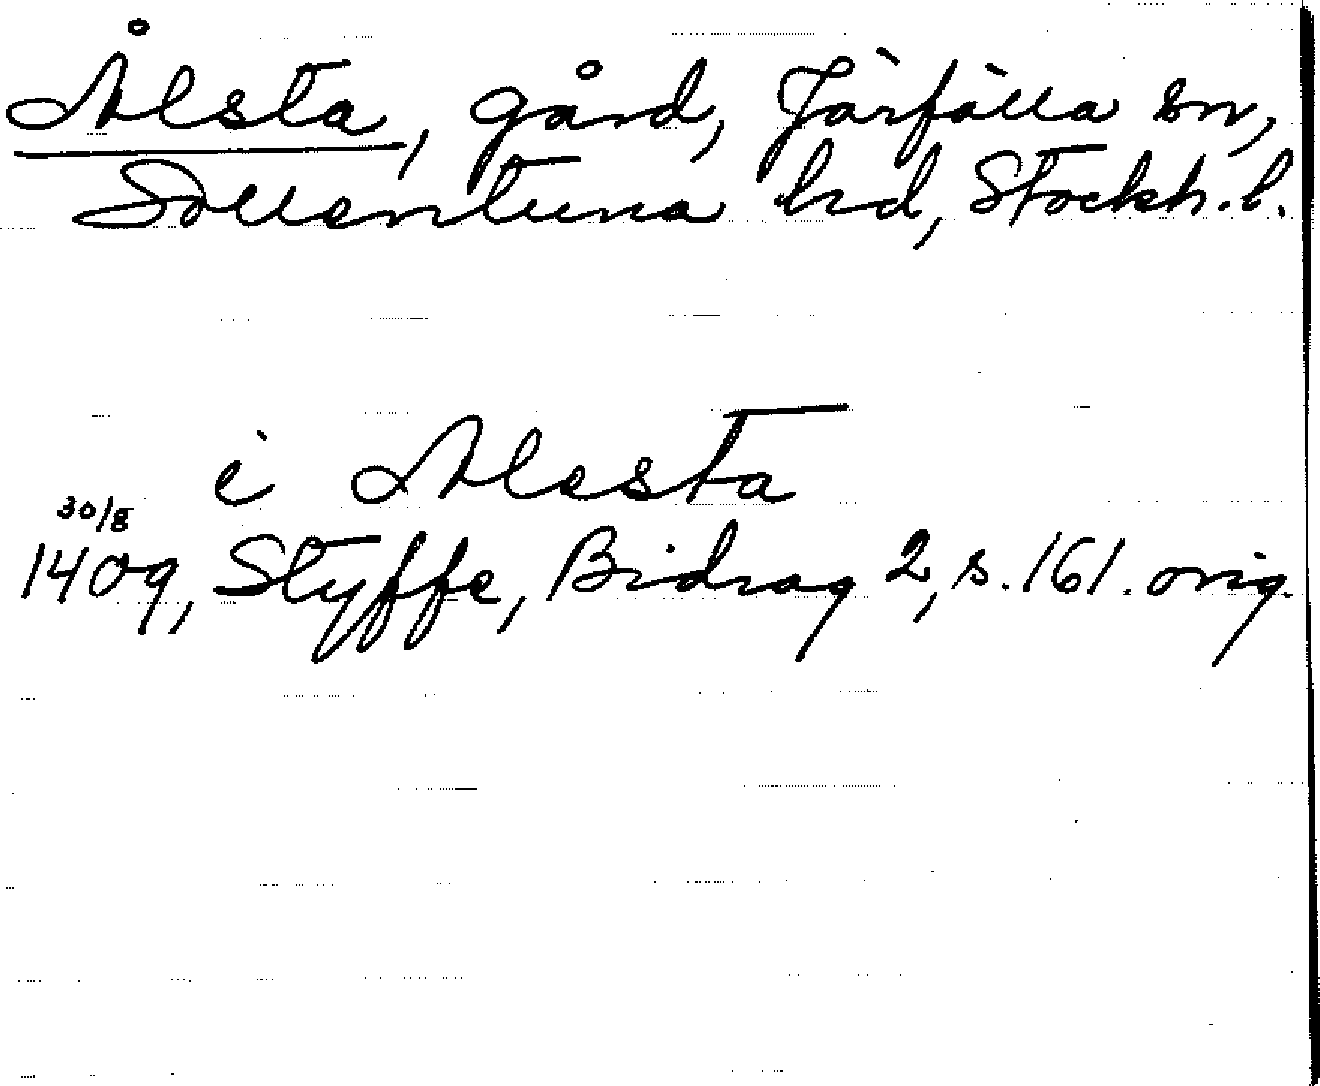 Ålsta, gård, Järfälla sn,
Sollentuna hd, Stockh. l.
i Alesta
30/8
1409, Styffe, Bidrag 2, s. 161. orig.